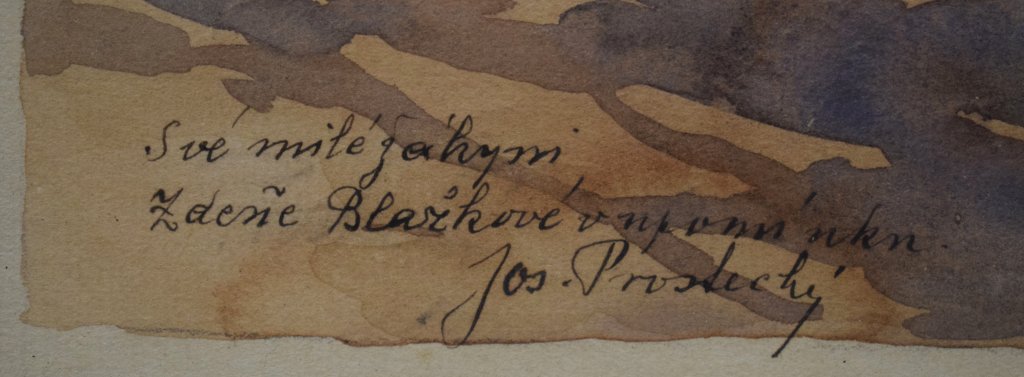 Své milé žákyni
Zdeně Blažkové v upomínku.
Jos. Prostecký